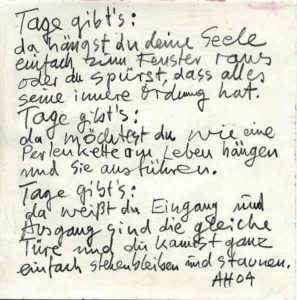 Tage gibt's:
da hängst du deine Seele
einfach zum Fenster raus
oder du spürst, dass alles
seine innere Ordnung hat.
Tage gibt's:
da möchtest du wie eine
Perlenkette am Leben hängen
und sie ausführen.
Tage gibt's:
da weißt du Eingang und
Ausgang sind die gleiche
Türe und du kannst ganz
einfach stehenbleiben und staunen.
AH 04